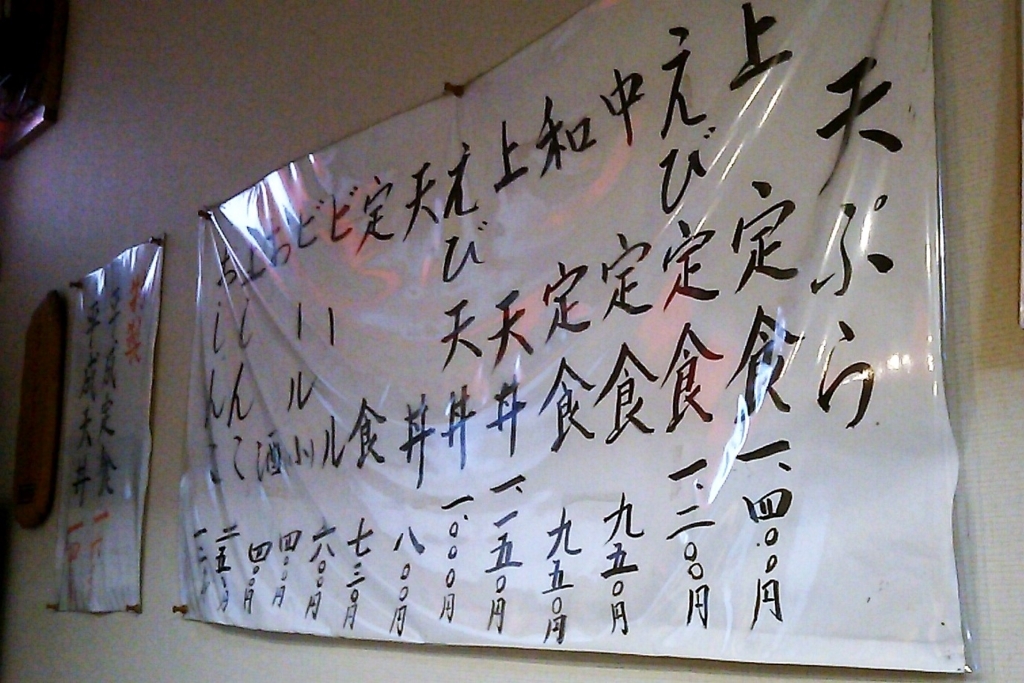 天ぷら
上定食 一、四〇〇円
えび定食 一、二〇〇円
中定食 九五〇円
和定食 九五〇円
上天丼 一、一五〇円
えび天丼 一、〇〇〇円
天丼 八〇〇円
定食 七三〇円
ビール 六〇〇円
ビール小 四〇〇円
お酒 四〇〇円
上しんこ 二五〇円
おしんこ
平成定食
平成天丼